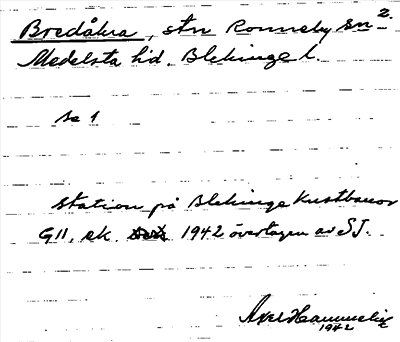 Bredåkra, stn Ronneby sn 2.
Medelsta hd. Blekinge l.
se 1
Station på Blekinge Kustbanor
G11, ek. 1942 övertagen av SJ.
Axel
1942